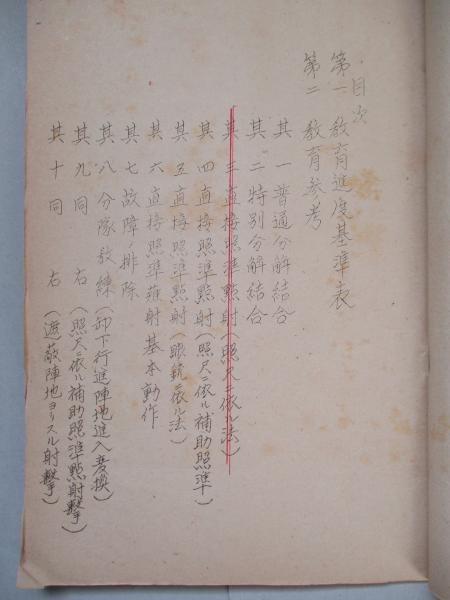 目次
第一 教育進度基準表
第二 教育参考
其一 普通分解結合
其二 特別分解結合
其三 直接照準點射(照尺ニ依ル法)
其四 直接照準點射(照尺ニ依ル補助照準)
其五 直接照準點射(眼鏡ニ依ル法)
其六 直接照準薙射基本動作
其七 故障ノ排除
其八 分隊教練(卸下行進陣地進入変換)
其九 同 右(照尺ニ依ル補助照準點射擊)
其十 同 右(遮蔽陣地ヨリスル射擊)